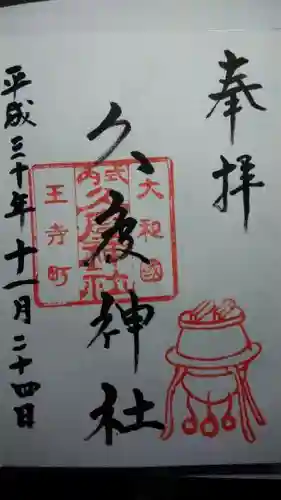 奉拝
久度神社
大和國
式内久度神社
王寺町
平成三十年十一月二十四日